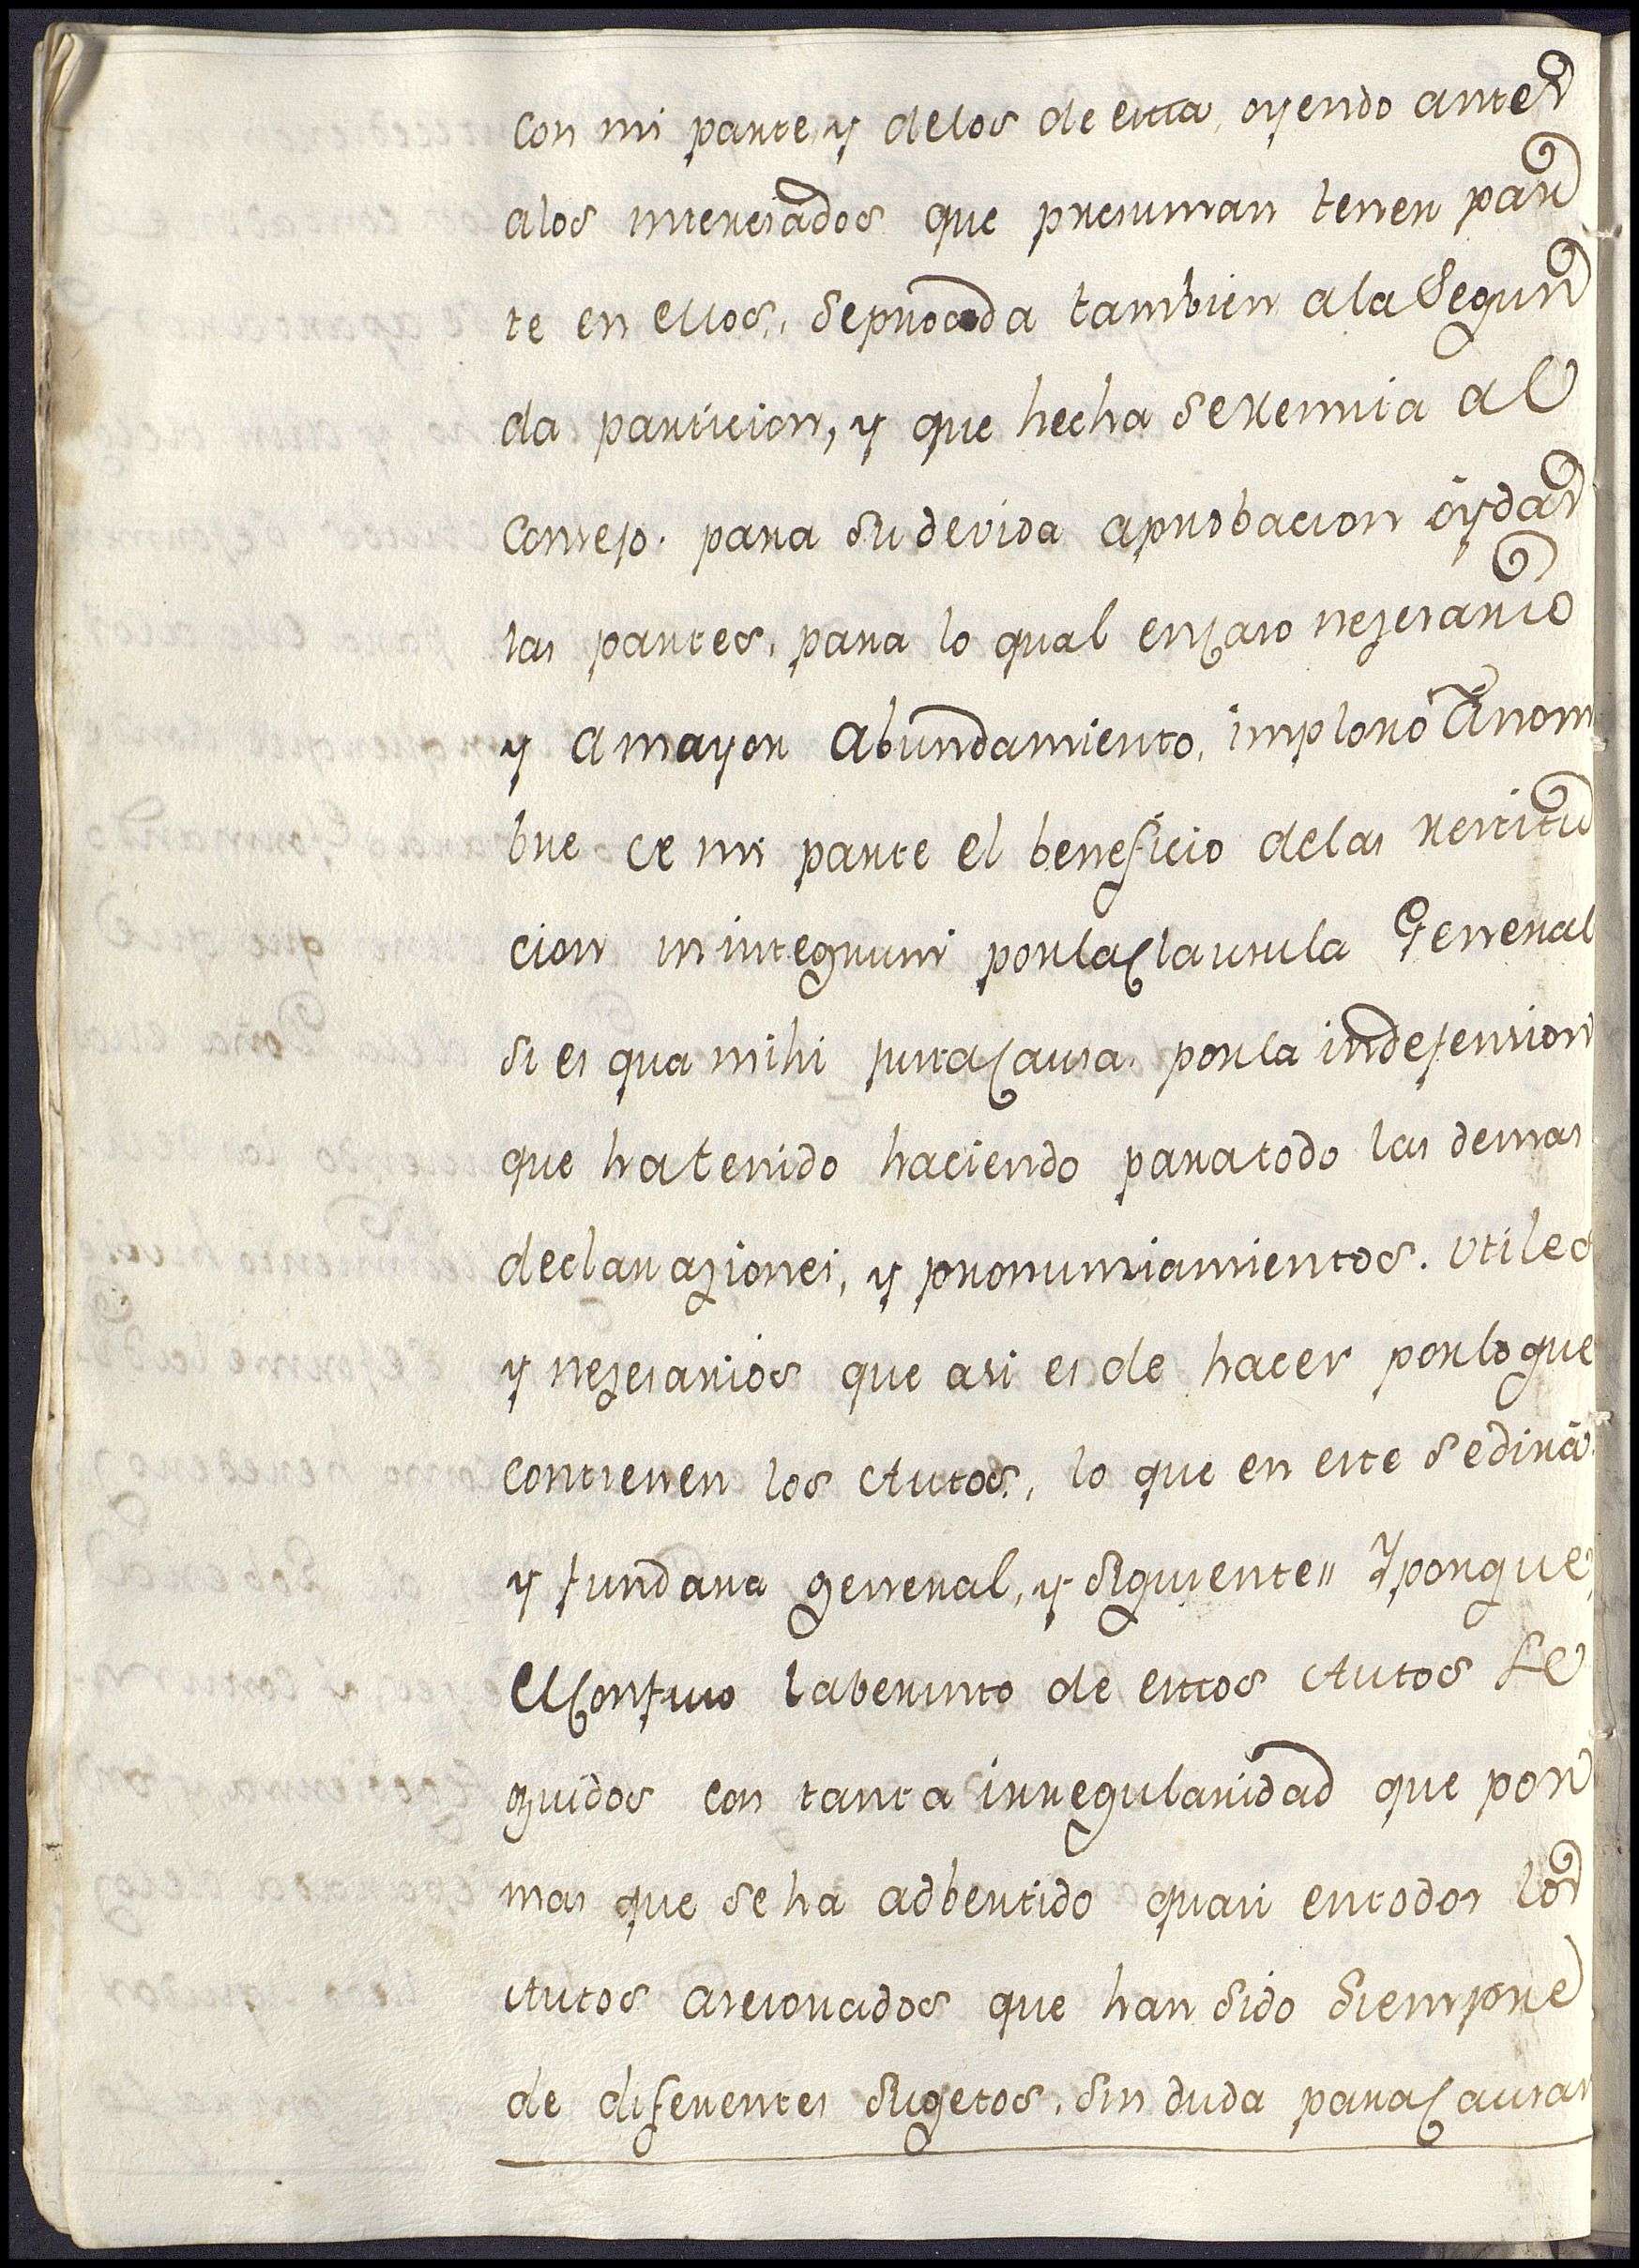 Con mi parte, y delos de esta, oyendo antes
alos interesados que presuman tener par
te en ellos, seproceda tambien ala Segun
da particion, y que hecha seremita al
Consejo. para su devida aprobacion oÿdas
las partes, para lo qual enCaso nezesario
y amayor abundamiento, imploro â nom
bre de mi parte el beneficio delas restitu
cion in integrum por laClausula General
si es qua mihi justaCausa. por la indefension
que hatenido haciendo paratodo las demas
declaraziones, y pronunsiamientos. utiles
y nezesarios que asi es de hacer por lo que
contienen los Autos, lo que en este sedirá
y fundara general, y siguiente" Yporque,
elConfuso laberinto de estos Autos se
guidos con tanta irregularidad que por
mas que seha adbertido quasi entodos los
Autos asesorados que han sido siempre
de diferentes sugetos, sin duda paraCausar